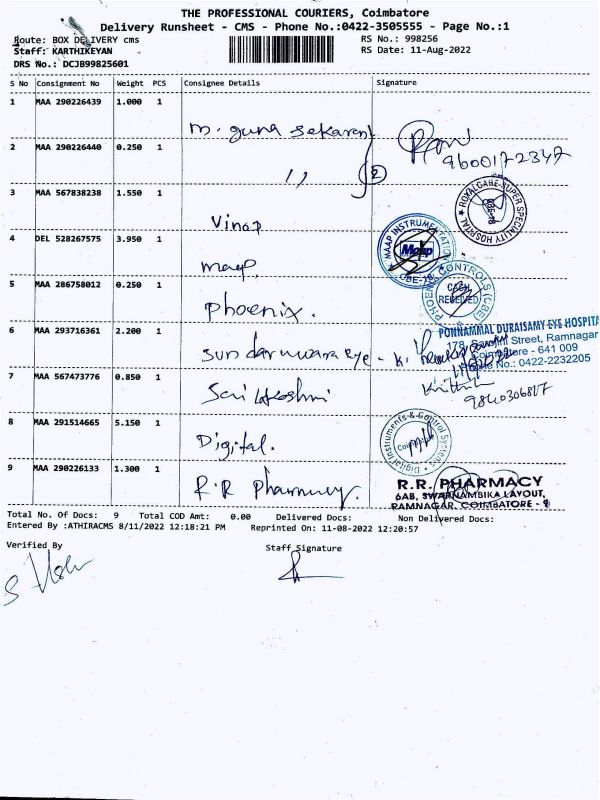 THE PROFESSIONAL COURIERS, Coimbatore
Delivery Runsheet - CMS - Phone No.:0422-3505555 - Page No.:1
Route: BOX DELIVERY cms RS No.: 998256
Staff: KARTHIKEYAN RS Date: 11-Aug-2022
DRS No.: DCJB99825601
S No Consignment No Weight PCS Consignee Details Signature
1 MAA 290226439 1.000 1 M. guna sekaran
2 MAA 290226440 0.250 1 ,, 2 9600172347
3 MAA 567838238 1.550 1 Vinap ROYALCARE SUPER SPECIALITY HOSPITAL
4 DEL 528267575 3.950 1 maap MAAP INSTRUMENTATION Maap CBE-18
5 MAA 286758012 0.250 1 phoenix. PHOENIX CONTROLS (CBE) CASH RECEIVED
6 MAA 293716361 2.200 1 PONNAMMAL DURAISAMY EYE HOSPITA
178, Street, Ramnagar
Coimbatore - 641 009
Phone No.: 0422-2232205
7 MAA 567473776 0.850 1 Sai Lakshmi 9840306817
8 MAA 291514665 5.150 1 Digital. Digital Instruments & Control Systems Coimbatore
9 MAA 290226133 1.300 1 R.R pharmacy. R.R. PHARMACY
6AB, SWARNAMBIKA LAYOUT,
RAMNAGAR, COIMBATORE - 9
Total No. Of Docs: 9 Total COD Amt: 0.00 Delivered Docs: Non Delivered Docs:
Entered By :ATHIRACMS 8/11/2022 12:18:21 PM Reprinted On: 11-08-2022 12:20:57
Verified By Staff Signature